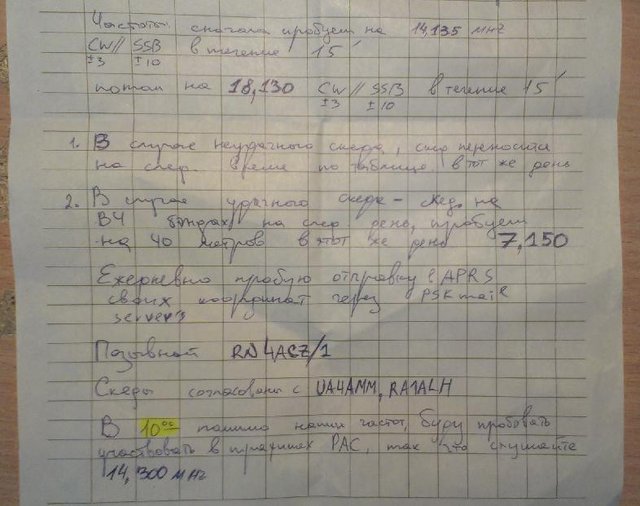 Частоты: сначала пробуем на 14,135 мнz
CW // SSB в течение 15'
±3 ±10
потом на 18,130 CW // SSB в течение 15'
±3 ±10
1. В случае неудачного скеда, скед переносится
на след. время по таблице в тот же день
2. В случае удачного скеда – след. на
ВЧ бэндах на след. день, пробуем
на 40 метров в этот же день 7,150
Ежедневно пробую отправку APRS
своих координат через PSKmail
server's
Позывной RN4ACZ/1
Скеды согласованы с UA4AMM, RA1ALH
В 10⁰⁰ помимо наших частот, буду пробовать
участвовать в трафиках РАС, так что слушайте
14,300 мнz